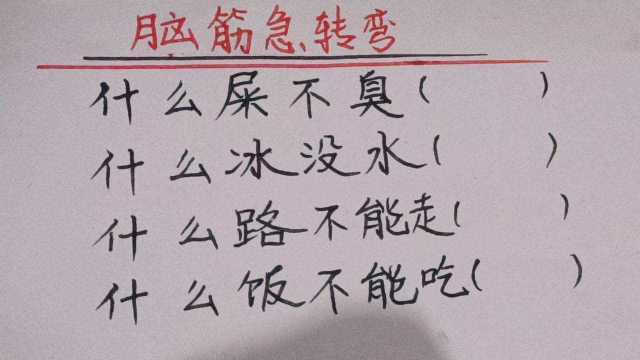 脑筋急转弯
什么屎不臭(    )
什么冰没水(    )
什么路不能走(    )
什么饭不能吃(    )